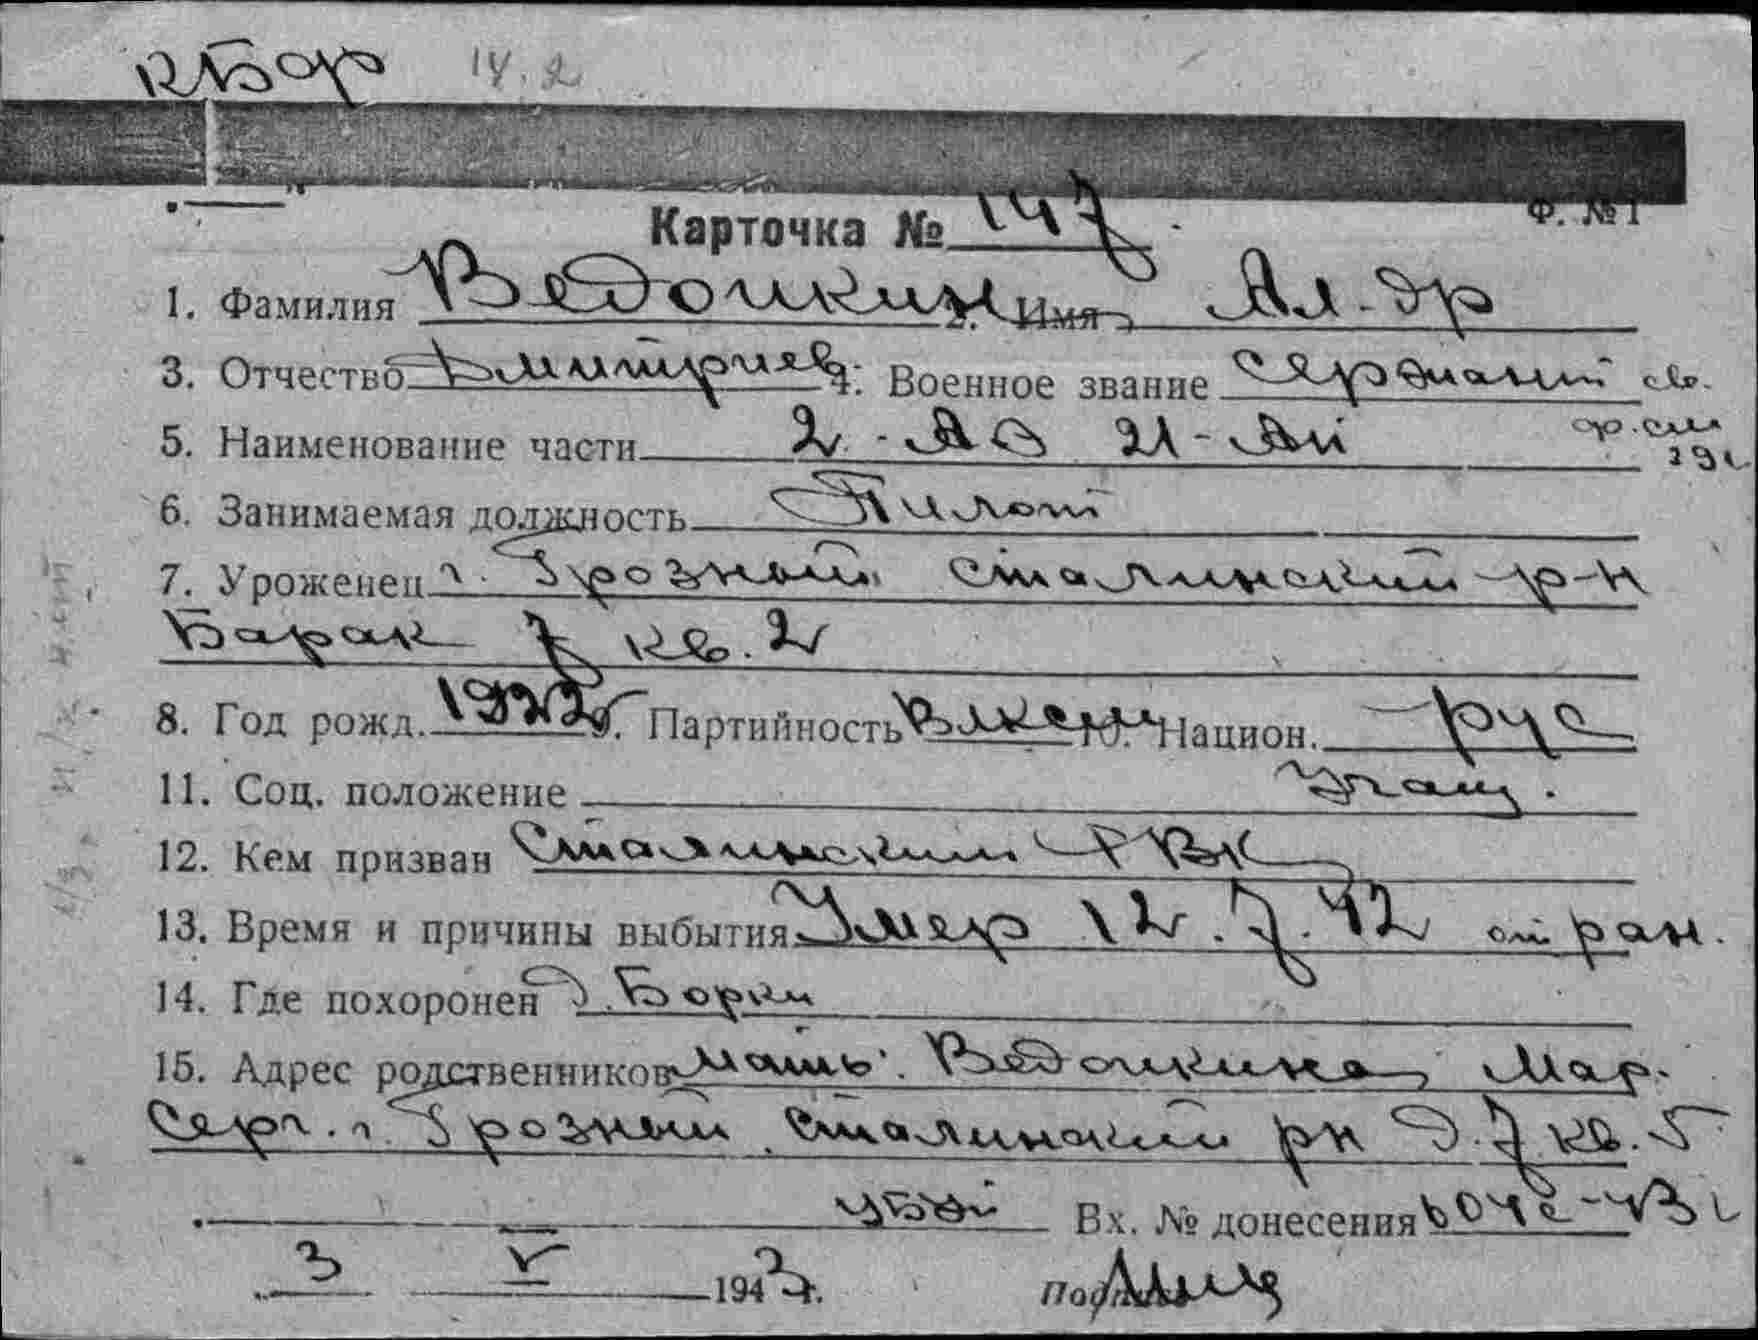 КБФ 14.2
Карточка № 147 Ф. № 1
1. Фамилия Ведошкин 2. Имя Ал-др
3. Отчество Дмитриев. 4. Военное звание Сержант св.
5. Наименование части 2-АЭ 21-АП ф. сп 29с
6. Занимаемая должность Пилот
7. Уроженец г. Грозный Сталинский р-н
Барак 7 кв. 2
8. Год рожд. 1922 9. Партийность ВЛКСМ 10. Национ. рус
11. Соц. положение Учащ.
12. Кем призван Сталинским РВК
13. Время и причины выбытия Умер 12.7.42 от ран.
14. Где похоронен д. Борки
15. Адрес родственников мать: Ведошкина Мар.
Серг. г. Грозный Сталинский рн д. 7 кв. 5
Вх. № донесения
3 V 1943 г. Подпись